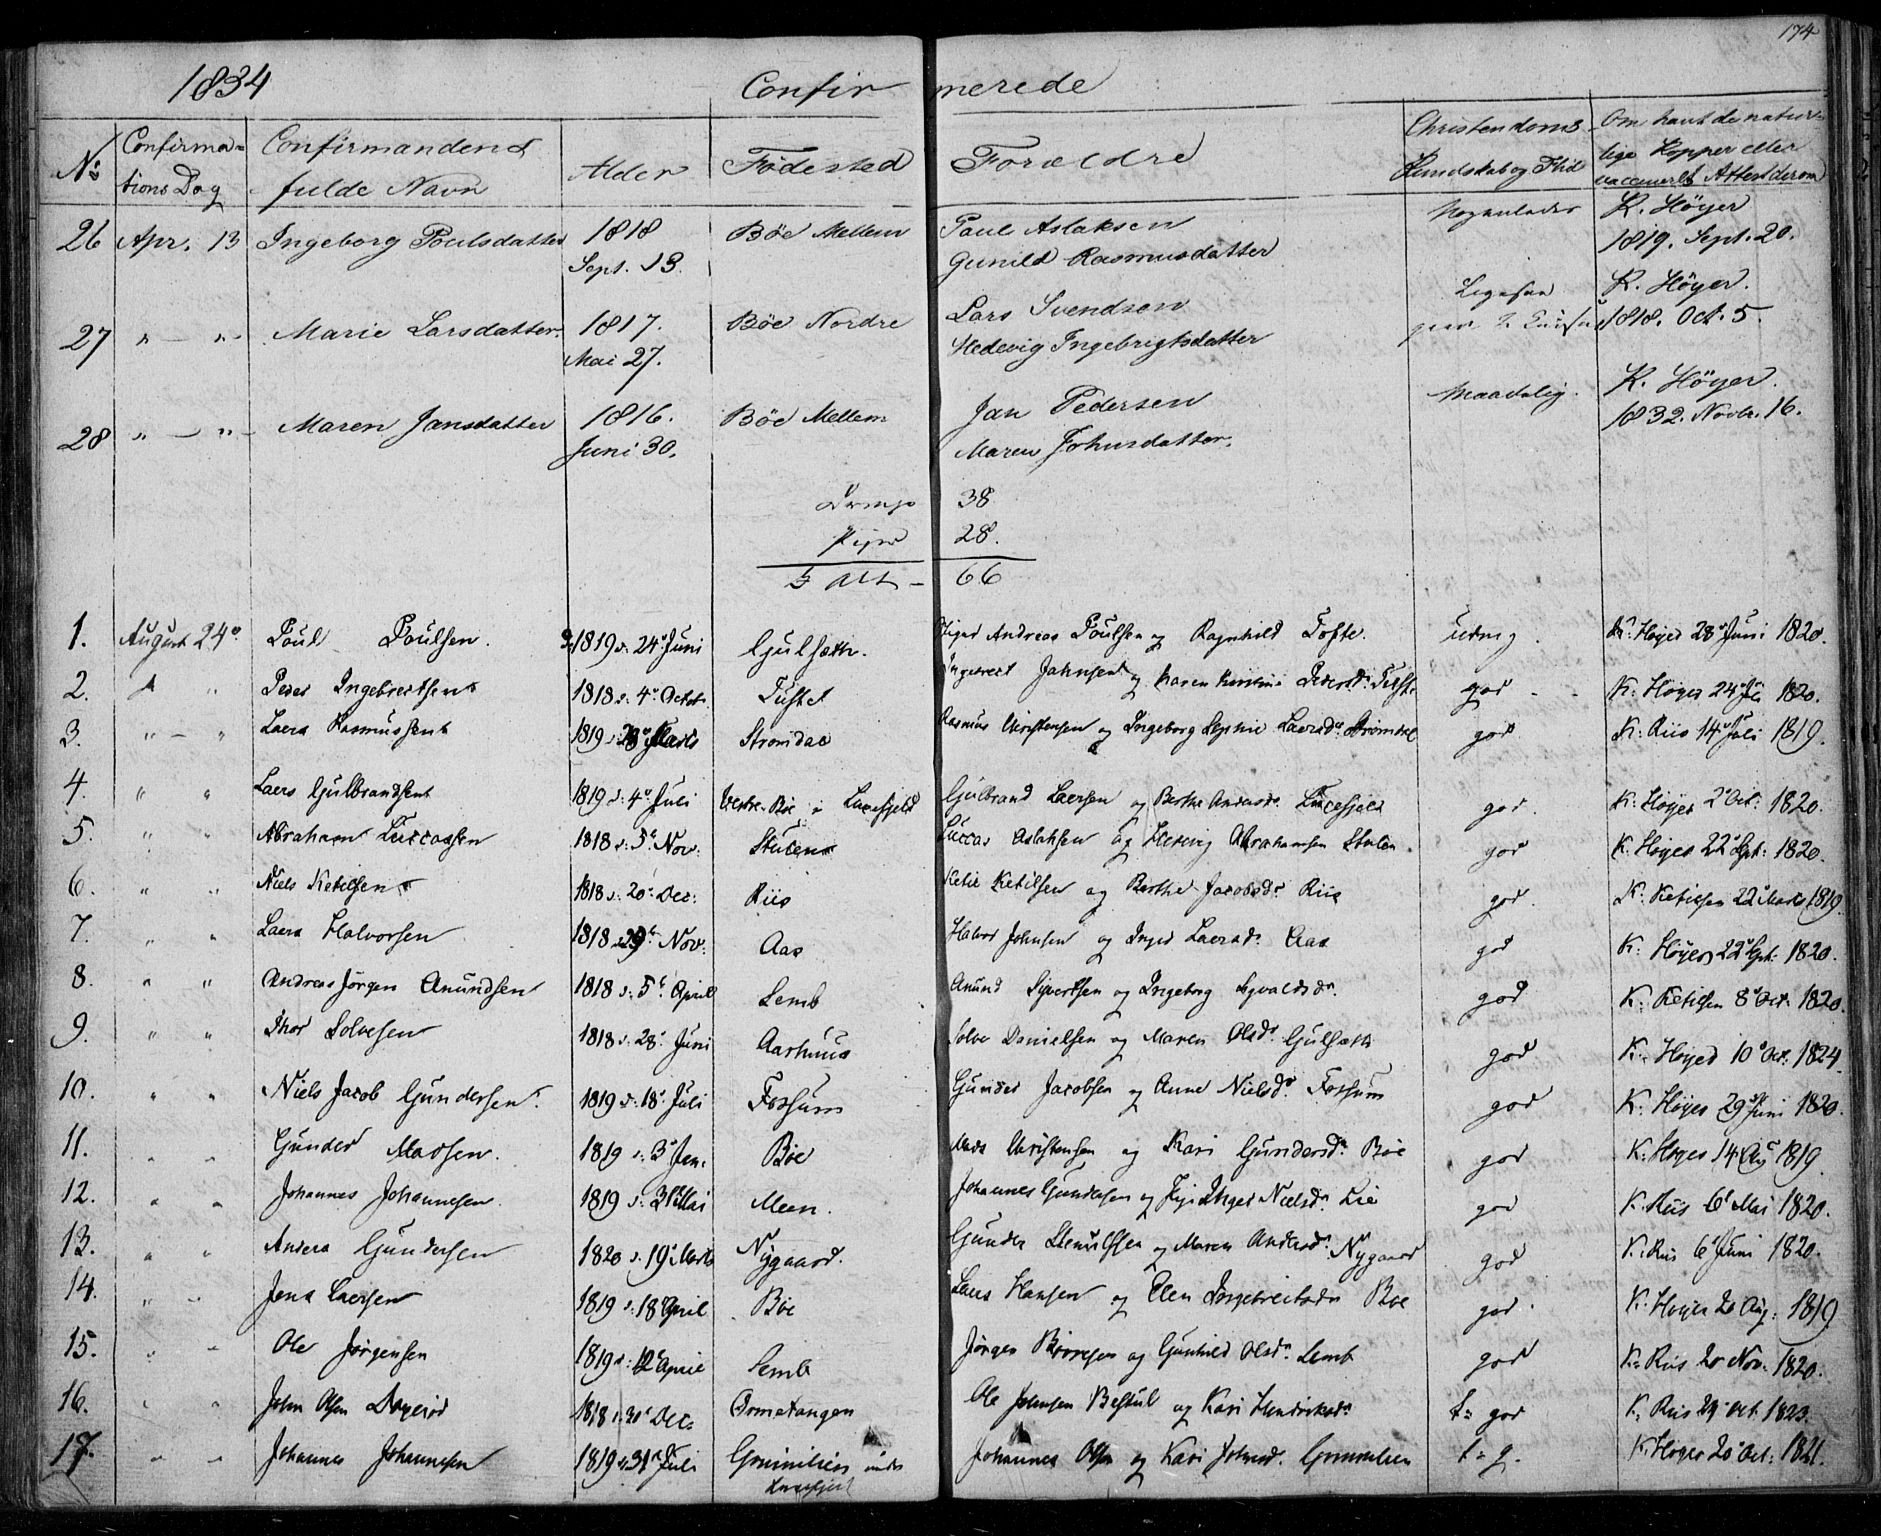 174
1834 Confirmerede
No Confirmations Dag Confirmandens fulde Navn Alder Fødested Forældre Christendoms Kundskab og Flid Om havt de naturlige Kopper eller vaccineret Attest derom
26 Apr. 13 Ingeborg Poulsdatter 1818 Sept. 13. Böe Mellem Poul Aslaksen Gunild Rasmusdatter K. Höyer 1819. Sept. 20.
27 " — " Marie Larsdatter 1817. Mai 27. Böe Nordre Lars Svendsen Hedevig Ingebrigtsdatter K. Höyer. 1818. Oct. 5.
28 " — " Maren Jansdatter 1816. Juni 30. Böe Mellem Jan Pedersen Maren Johnsdatter. Maadelig. K. Höyer. 1832. Novbr. 16.
Drenge 38
Piger 28.
I Alt — 66
1. August 24de Poul Poulsen. 1819 d: 24 Juni Gjulsæth. Andreas Poulsen og Ragnhild Tofte. udm. K: Höyer 28 Juni 1820.
2. " " Peder Ingebretsen 1818 d: 4 Octob: Tuftet Ingebret Jahnsen og Maren Kirstine Pedersd: god K: Höyer 24 1820.
3. " — " Laers Rasmussen 1819 Marts Stromdal Rasmus Christensen og Ingeborg Sophie Laersdr Strömdal god K: Riis 14 Juli 1819.
4. " " Laers Gjulbrandsen 1819 d: 4 Juli Vestre Böe i Luxefjeld Gjulbrand Laersen og Berthe Andersdr Luxefjeld god. K: Höyer 2 Oct: 1820.
5. " " Abraham Luccassen 1818 d: 5 Nov: Stulen Luccas Aslaksen og Hedevig Abrahamsen Stulen. god K: Höyer 22 Sept: 1820.
6. " " Niels Ketilsen 1818 d: 20 Dec: Riis Ketil Ketilsen og Berthe Jacobsdr Riis god. K: Ketilsen 22 Marts 1819.
7. " " Laers Halvorsen 1818 29 Nov: Aas Halvor Johnsen og Inger Laersdr Aas god K: Höyer 22 Sept: 1820.
8. " " Andreas Jörgen Anundsen 1818 d: 5 April Semb Anund Syvertsen og Ingeborg god K: Ketilsen 8 Oct: 1820.
9. " " Thor Solvesen 1818 d: 28 Juni Aarhuus Solve Danielsen og Maren Olsdr Gjulsæth god K: Höyer 10 Oct: 1824.
10. " " Niels Jacob Gundersen. 1819 d: 18 Juli Fossum Gunder Jacobsen og Anne Nielsdr Fossum god K: Höyer 29 Juni 1820.
11. " " Gunder Madsen. 1819 d: 3 Jan. Böe Mads Christensen og Kari Gundersdr Böe god K: Höyer 14 Aug 1819.
12. " " Johannes Johannesen. 1819 d: 31 Mai Meen. Johannes Gundersen og Inger Nielsdr Lie god K: Riis 6 Mai 1820.
13. " " Anders Gundersen 1820 d: 19 Marts Nygaard. Gunder Stenulfsen og Maren Andersdr Nygaard god K: Riis 6 Juni 1820.
14. " " Jens Laersen 1819 d: 18 April Böe Laers Hansen og Elen Ingebretsdr Böe god. K: Höyer 20 Aug: 1819
15. " " Ole Jörgensen 1819 d: 12 April Semb Jörgen Börresen og Gunhild Olsdr Semb god K: Riis 20 Nov: 1820.
16. " " John Olsen 1818 d: 30 Dec: Ormetangen Ole Johnsen Bestul og Kari Hendriksdr t: god K: Riis 29 Oct. 1823.
17. " " Johannes Johannesen 1819 d: 31 Juli under Luxefjeld Johannes Olsen og Kari Johnsd: t: g. K: Höyer 20 Oct: 1821.